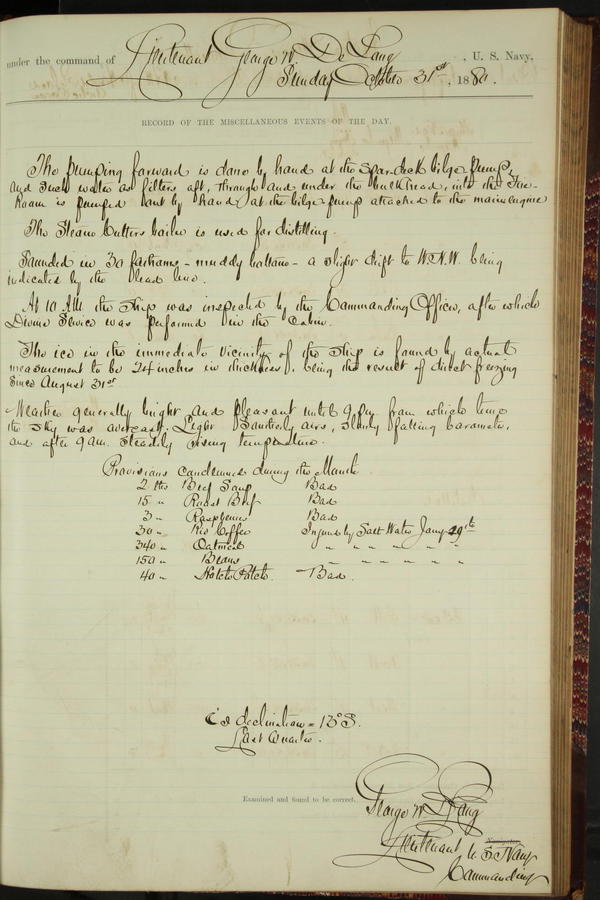 under the command of Lieutenant George W. De Long, U. S. Navy,
Sunday October 31st, 1880.
RECORD OF THE MISCELLANEOUS EVENTS OF THE DAY.
The pumping forward is done by hand at the spar-deck bilge pump,
and such water as filters aft, through and under the bulkhead, into the Fire-
Room is pumped out by hand, at the bilge pump attached to the main engine
The Steam Cutters boiler is used for distilling.
Sounded in 30 fathoms - muddy bottom - a slight drift to W.N.W. being
indicated by the lead line.
At 10 A.M. the ship was inspected by the Commanding Officer, after which
Divine Service was performed in the cabin.
The ice in the immediate vicinity of the ship is found by actual
measurement to be 24 inches in thickness, being the result of direct freezing
since August 31st
Weather generally bright and pleasant until 9 pm from which time
the sky was overcast. Light Southerly airs, slowly falling barometer,
and after 9 am. steadily rising temperature.
Provisions condemned during the Month
2 lbs Beef Soup Bad
15 " Roast Beef Bad
3 " Raspberries Bad
30 " Rio Coffee Injured by Salt Water Jany 29th
340 " Oatmeal " " " " "
150 " Beans " " " " "
40 " Hotch Potch. Bad.
declination = 13° S.
Last Quarter.
Examined and found to be correct.
George W. De Long
Lieutenant U. S. Navy
Navigator.
Commanding